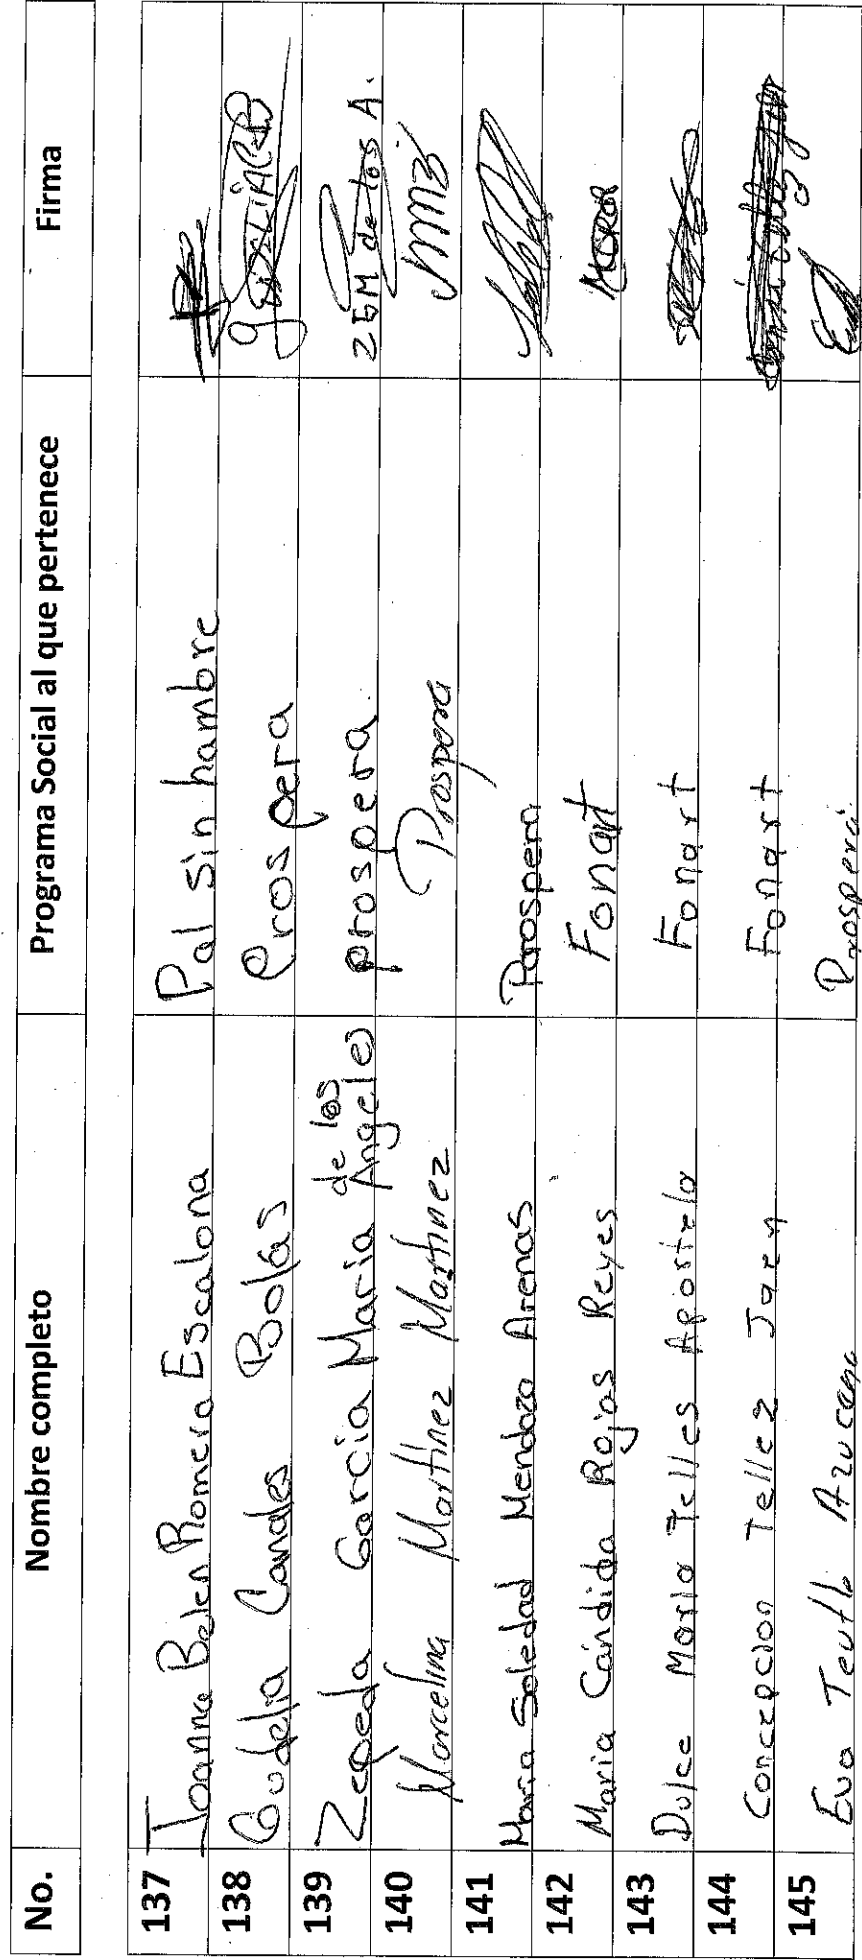 No. Nombre completo Programa Social al que pertenece Firma
137 Joanna Belen Romero Escalona Pal sin hambre
138 Gudelia Canales Bolás Prospera
139 Zepeda Garcia Maria de los Angeles prospera. ZGM de los A.
140 Marcelina Martínez Martínez Prospera MMZ
141 Maria Soledad Mendoza Arenas Prospera
142 Maria Cándida Rojas Reyes Fonart
143 Dulce Maria Telles Apostelo Fonart
144 Concepcion Tellez Jaen Fonart
145 Eva Teutle Azucena Prospera